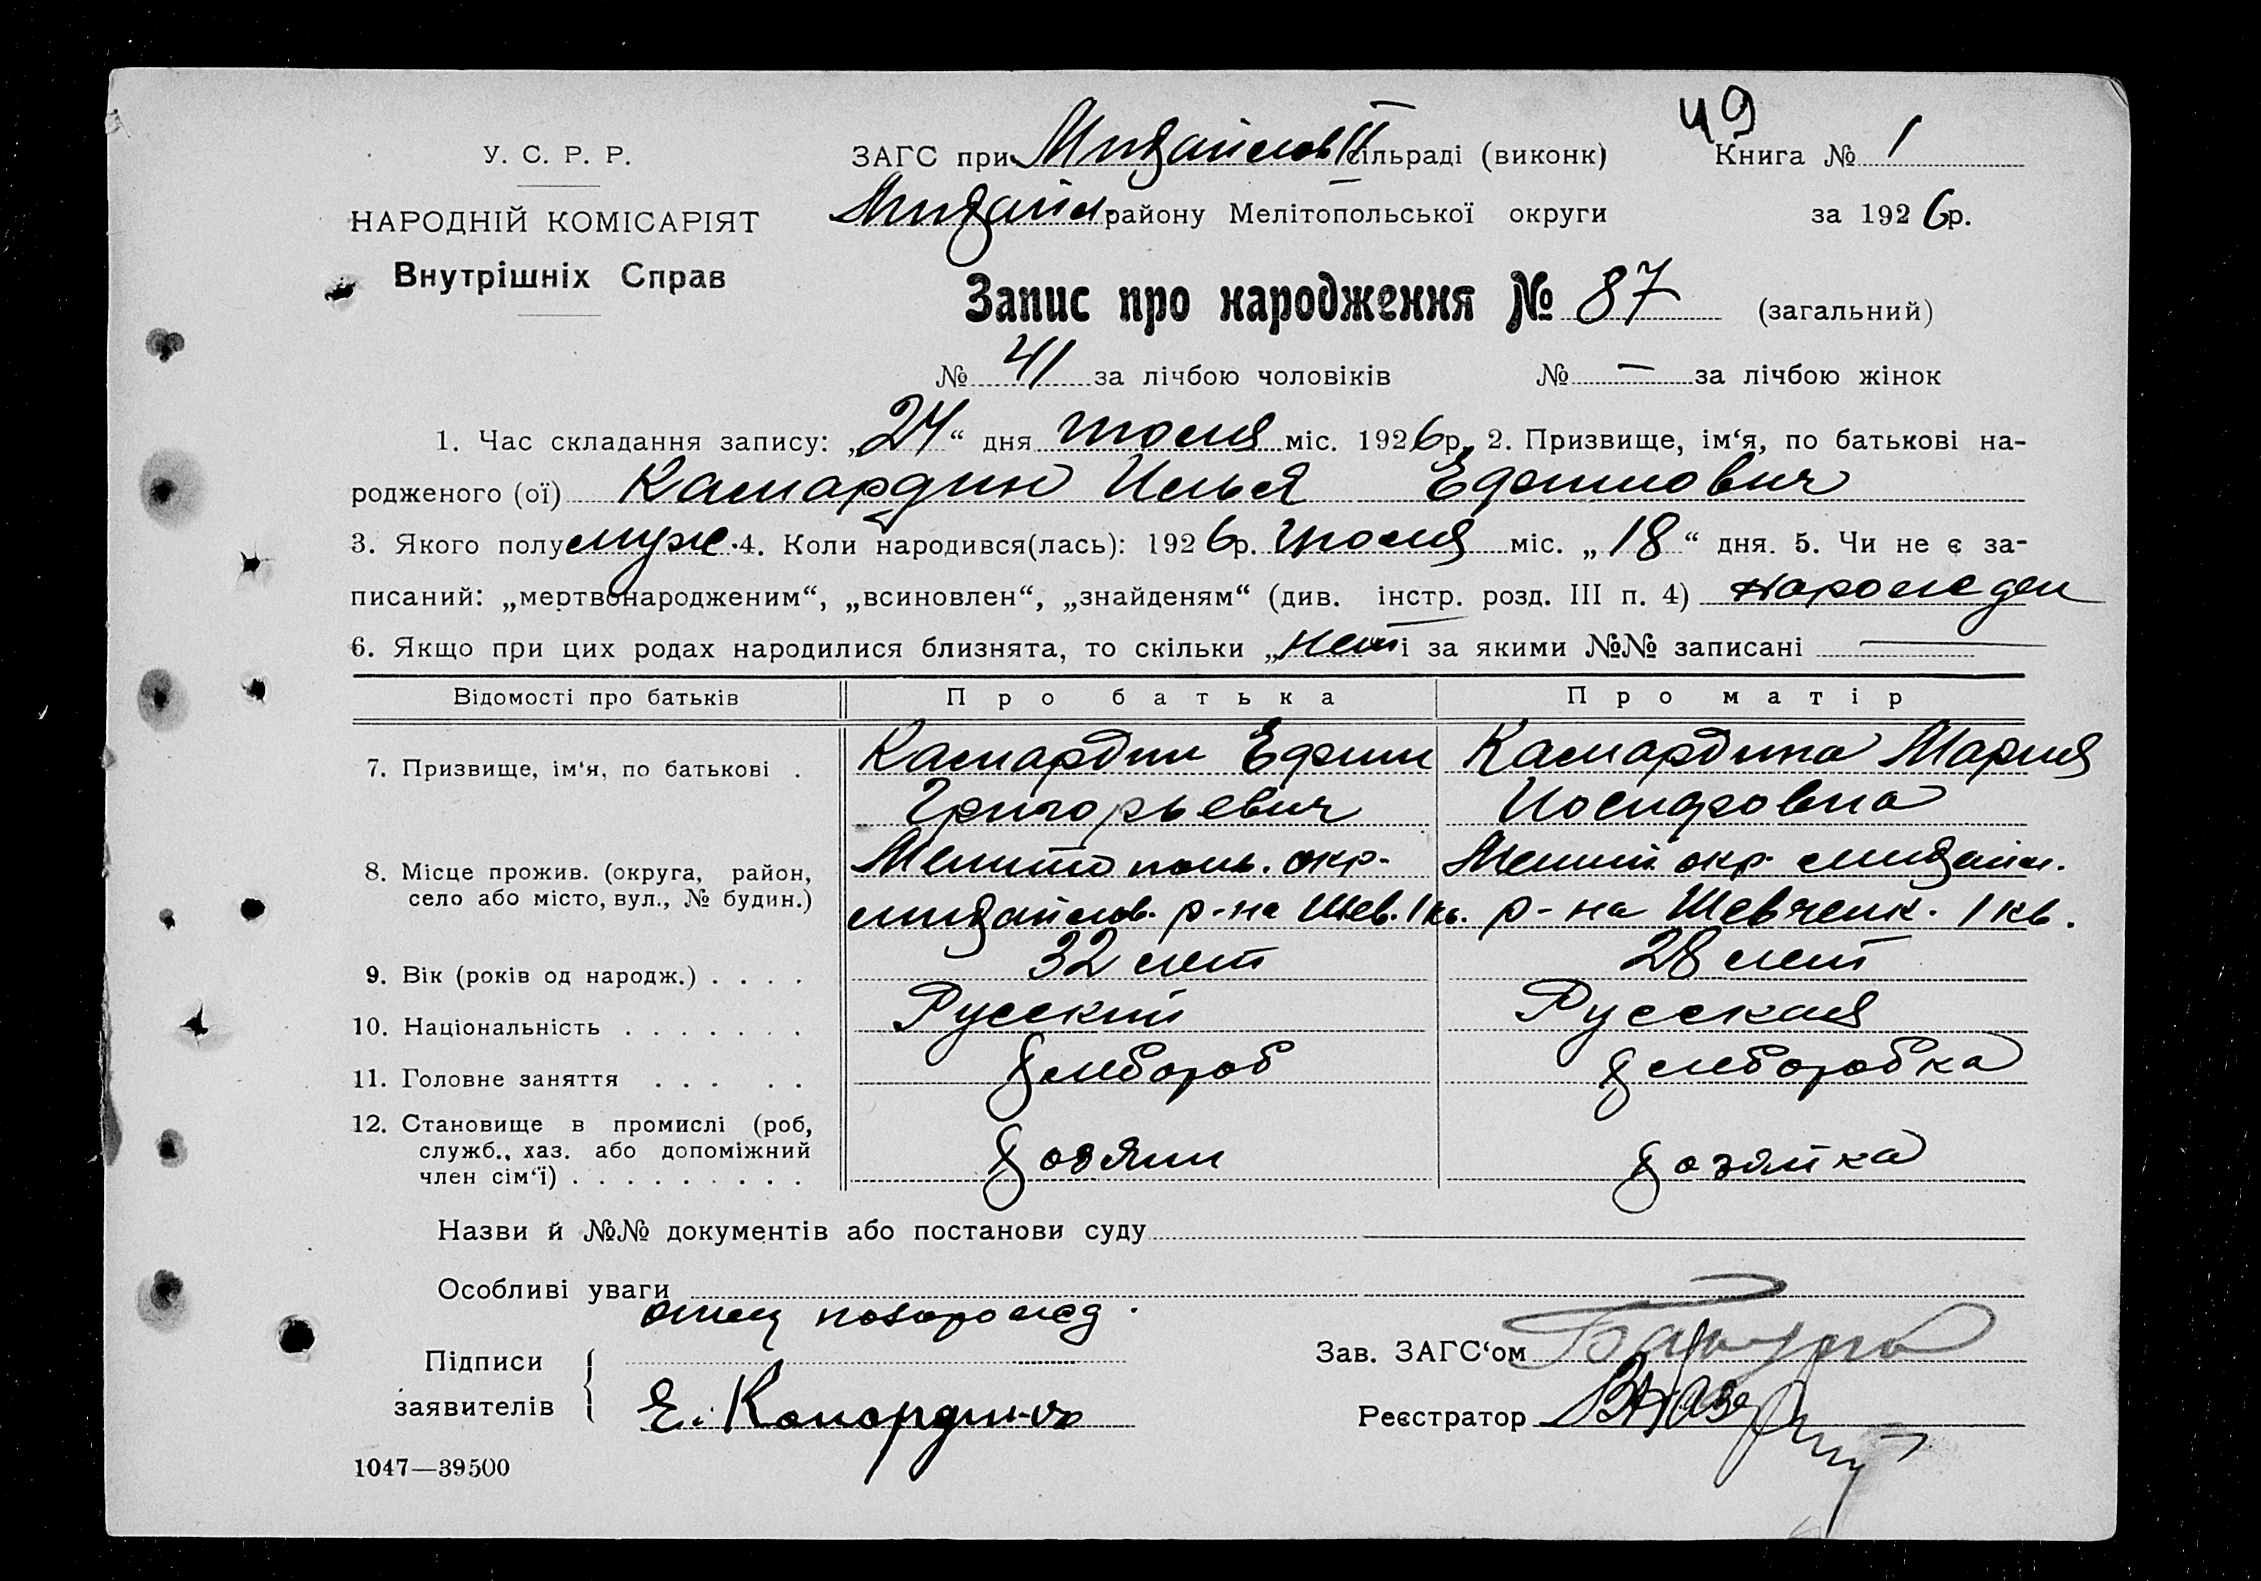 49
У. С. Р. Р.
ЗАГС при Михайлов II сільраді (виконк)
Книга № 1
НАРОДНІЙ КОМІСАРІЯТ
Михайл. району Мелітопольської округи
за 1926 р.
Внутрішніх Справ
Запис про народження № 87 (загальний)
№ 41 за лічбою чоловіків № — за лічбою жінок
1. Час складання запису: „24“ дня июля міс. 1926 р. 2. Призвище, ім‘я, по батькові на-
родженого (ої) Камардин Илья Ефимович
3. Якого полу муж. 4. Коли народився(лась): 1926 р. июля міс. „18“ дня. 5. Чи не є за-
писаний: „мертвонародженим“, „всиновлен“, „знайденям“ (див. інстр. розд. III п. 4) нарожден
6. Якщо при цих родах народилися близнята, то скільки „нет і за якими №№ записані —
Відомості про батьків Про батька Про матір
7. Призвище, ім‘я, по батькові . Камардин Ефим Камардина Мария
Григорьевич Иосифовна
8. Місце прожив. (округа, район, Мелитополь. окр. Мелит. окр. михайл.
село або місто, вул., № будин.) михайлов. р-на Шев. 1 кв. р-на Шевченк. 1 кв.
9. Вік (років од народж.) . . . . 32 лет 28 лет
10. Національність . . . . . . . Русский Русская
11. Головне заняття . . . . . хлебороб хлеборобка
12. Становище в промислі (роб,
служб., хаз. або допоміжний хозяин хозяйка
член сім‘ї) . . . . . . . . .
Назви й №№ документів або постанови суду
Особливі уваги
отец новорожд.
Підписи
заявителів
Е. Комординь
Зав. ЗАГС‘ом
Реєстратор
1047—39500